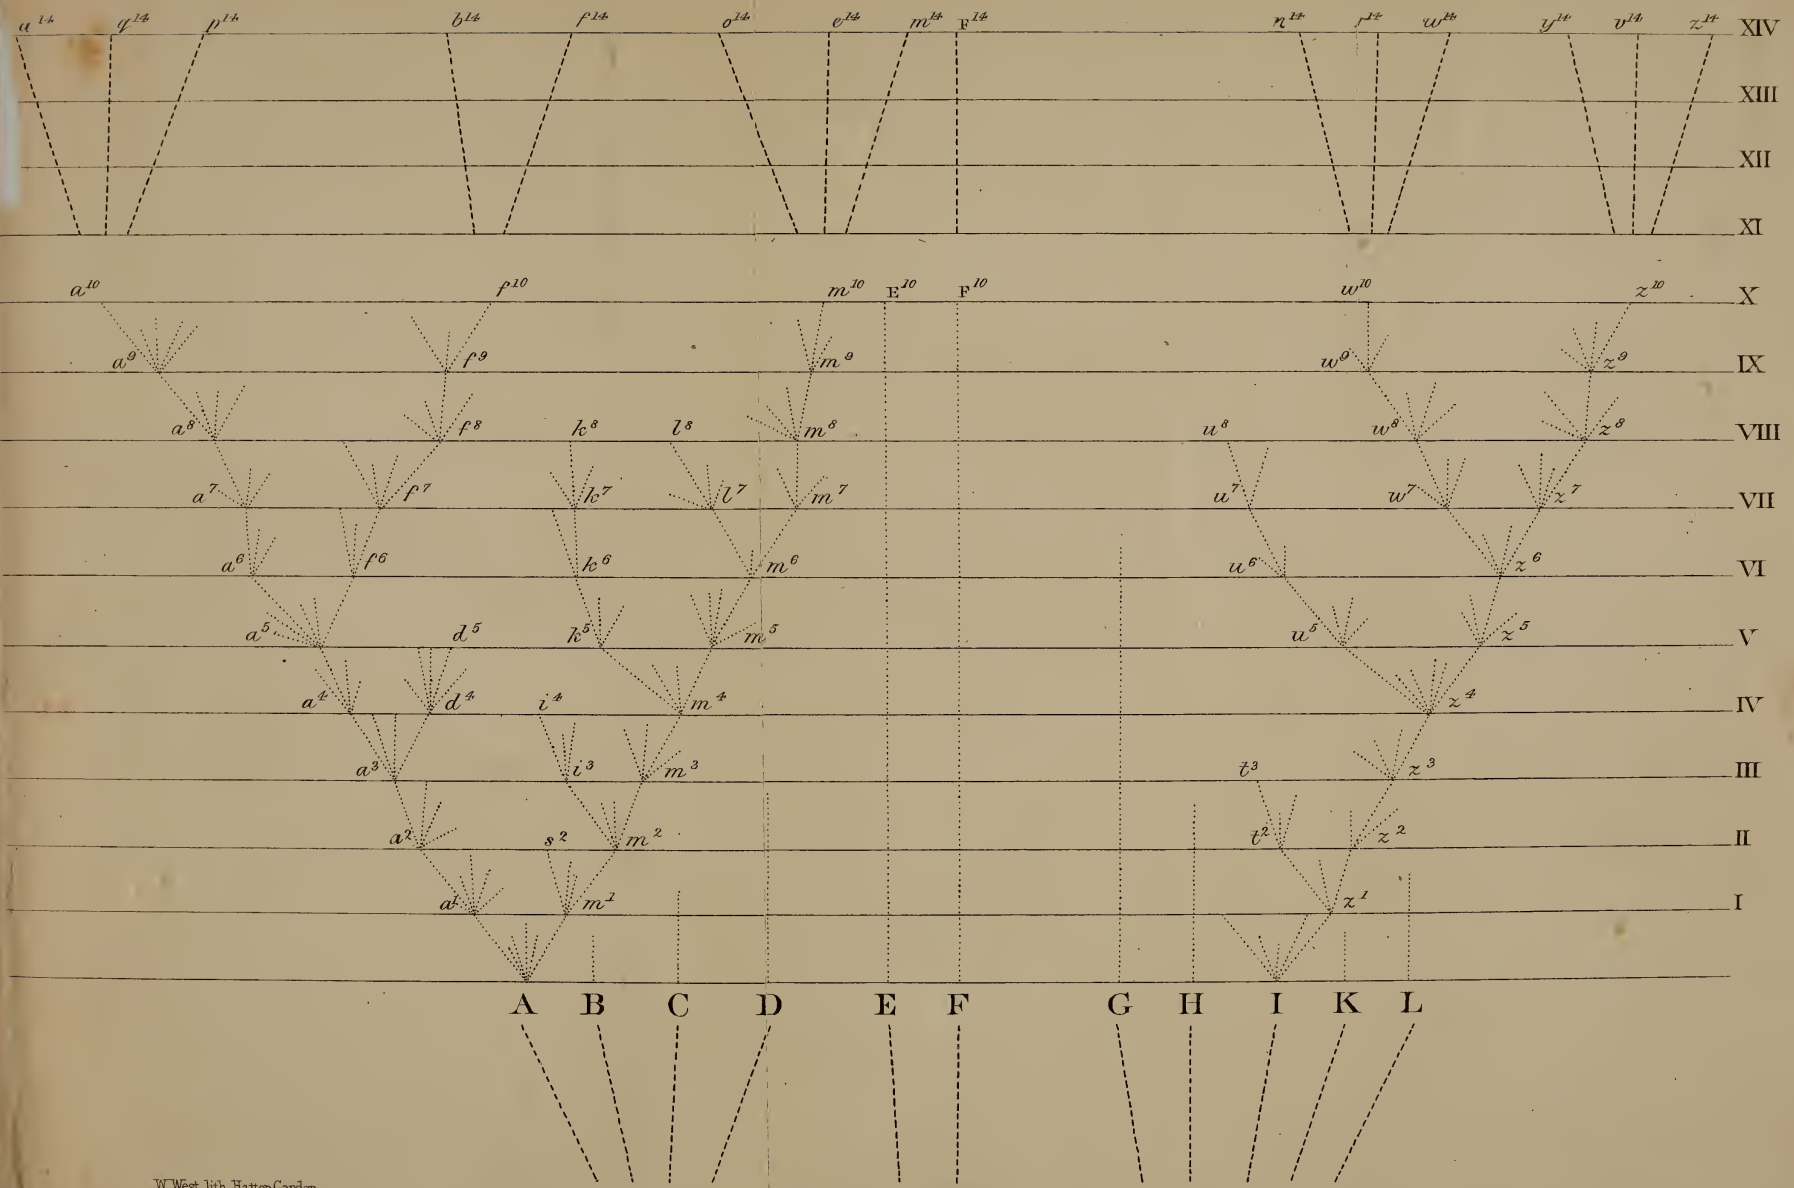 a¹⁴ q¹⁴ p¹⁴ b¹⁴ f¹⁴ o¹⁴ e¹⁴ m¹⁴ F¹⁴ n¹⁴ r¹⁴ w¹⁴ y¹⁴ v¹⁴ z¹⁴ XIV
XIII
XII
XI
a¹⁰ f¹⁰ m¹⁰ E¹⁰ F¹⁰ w¹⁰ z¹⁰ X
a⁹ f⁹ m⁹ w⁹ z⁹ IX
a⁸ f⁸ k⁸ l⁸ m⁸ u⁸ w⁸ z⁸ VIII
a⁷ f⁷ k⁷ l⁷ m⁷ u⁷ w⁷ z⁷ VII
a⁶ f⁶ k⁶ m⁶ u⁶ z⁶ VI
a⁵ d⁵ k⁵ m⁵ u⁵ z⁵ V
a⁴ d⁴ i⁴ m⁴ z⁴ IV
a³ i³ m³ t³ z³ III
a² s² m² t² z² II
a¹ m¹ z¹ I
A B C D E F G H I K L
W. West lith. Hatton Garden